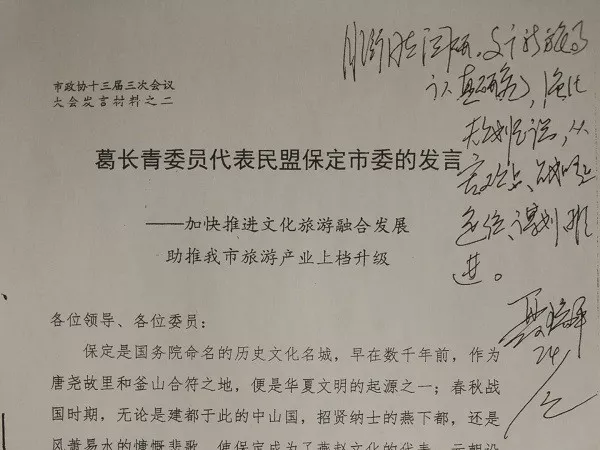 市政协十三届三次会议
大会发言材料之二
葛长青委员代表民盟保定市委的发言
——加快推进文化旅游融合发展
助推我市旅游产业上档升级
各位领导、各位委员：
保定是国务院命名的历史文化名城，早在数千年前，作为
唐尧故里和釜山合符之地，便是华夏文明的起源之一；春秋战
国时期，无论是建都于此的中山国，招贤纳士的燕下都，还是
风萧易水的慷慨悲歌，使保定成为了燕赵文化的代表，元朝设
认真研究，强化
谋划推
进。
24/2